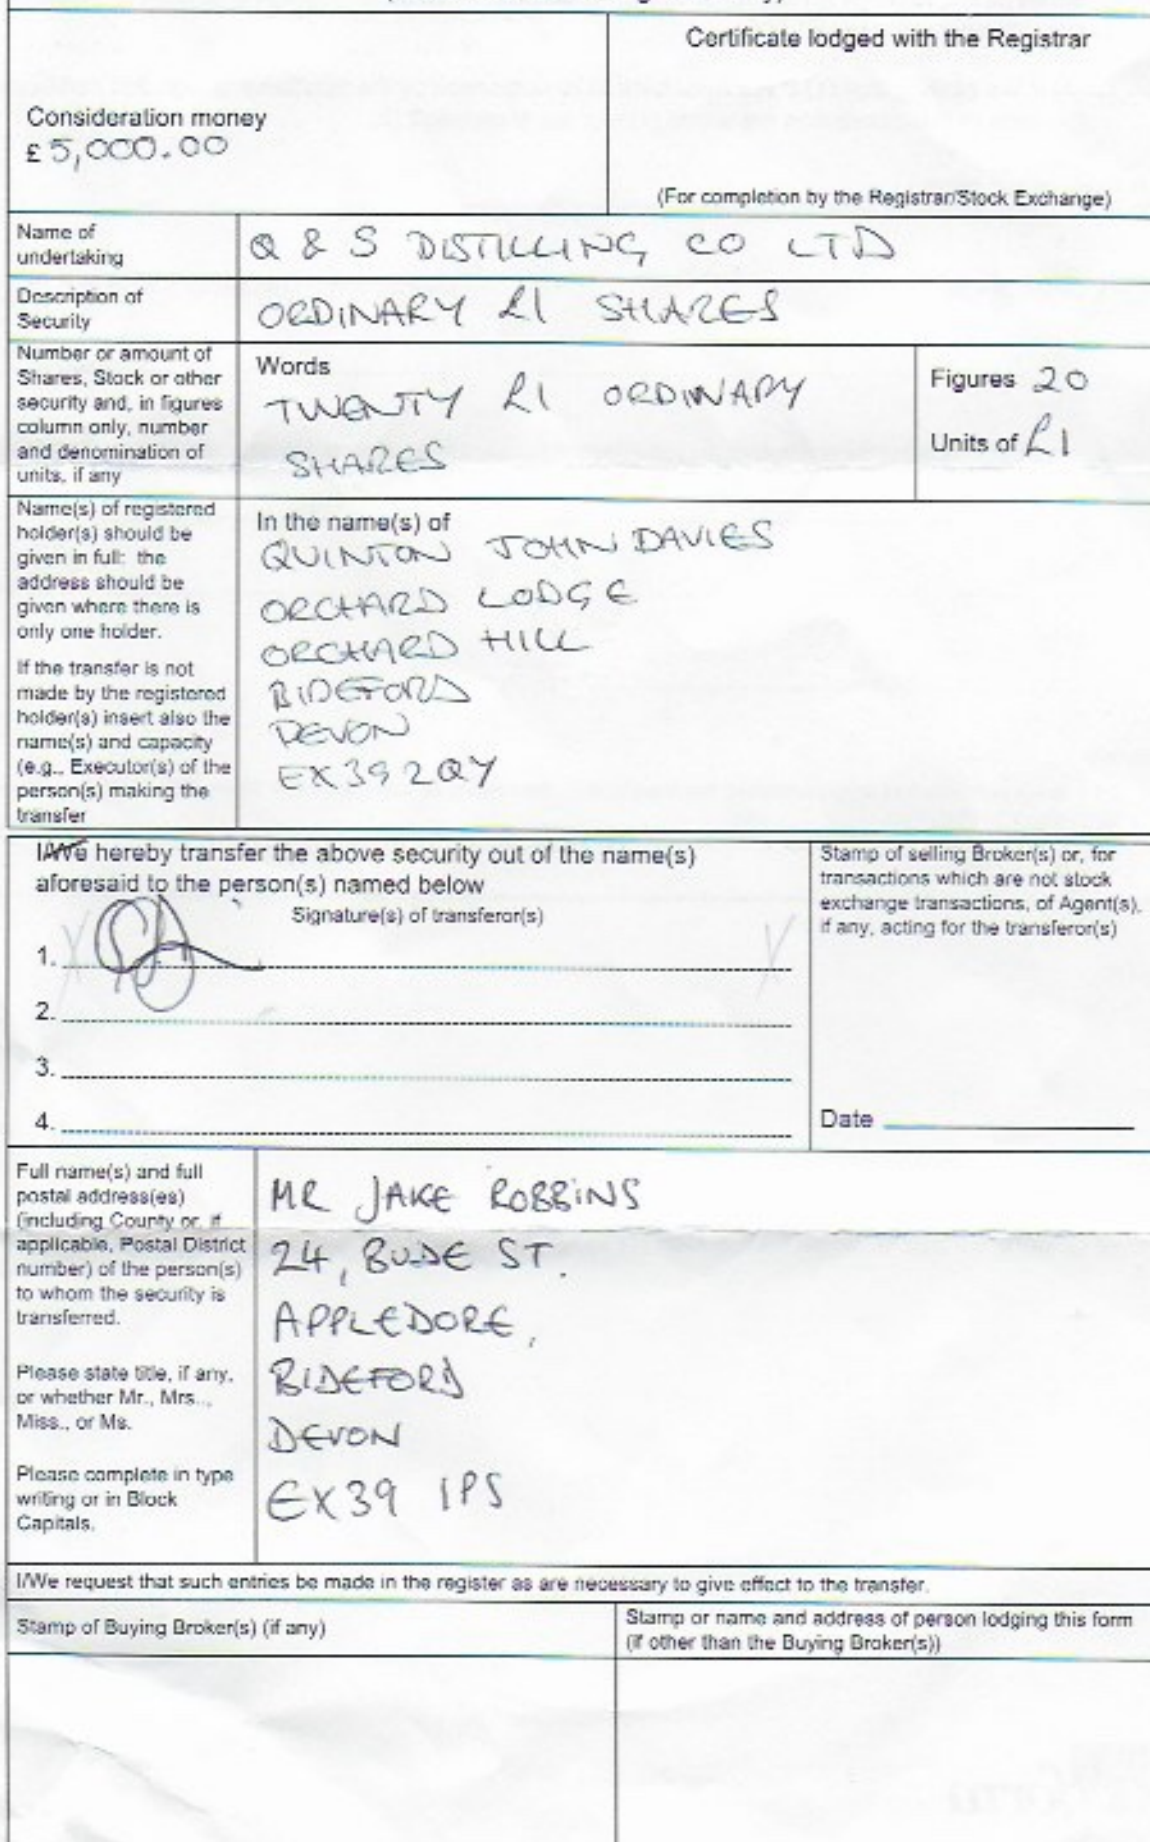 Certificate lodged with the Registrar
Consideration money
£5,000.00
(For completion by the Registrar/Stock Exchange)
Name of
undertaking
Q & S DISTILLING CO LTD
Description of
Security
ORDINARY £1 SHARES
Number or amount of
Shares, Stock or other
security and, in figures
column only, number
and denomination of
units, if any
Words
TWENTY £1 ORDINARY
SHARES
Figures 20
Units of £1
Name(s) of registered
holder(s) should be
given in full: the
address should be
given where there is
only one holder.
If the transfer is not
made by the registered
holder(s) insert also the
name(s) and capacity
(e.g., Executor(s) of the
person(s) making the
transfer
In the name(s) of
QUINTON JOHN DAVIES
ORCHARD LODGE
ORCHARD HILL
BIDEFORD
DEVON
EX39 2QY
I/We hereby transfer the above security out of the name(s)
aforesaid to the person(s) named below
Signature(s) of transferor(s)
1.
2.
3.
4.
Stamp of selling Broker(s) or, for
transactions which are not stock
exchange transactions, of Agent(s),
if any, acting for the transferor(s)
Date
Full name(s) and full
postal address(es)
(including County or, if
applicable, Postal District
number) of the person(s)
to whom the security is
transferred.
Please state title, if any,
or whether Mr., Mrs..,
Miss., or Ms.
Please complete in type
writing or in Block
Capitals.
MR JAKE ROBBINS
24, BUDE ST.
APPLEDORE,
BIDEFORD
DEVON
EX39 1PS
I/We request that such entries be made in the register as are necessary to give effect to the transfer.
Stamp of Buying Broker(s) (if any)
Stamp or name and address of person lodging this form
(if other than the Buying Broker(s))